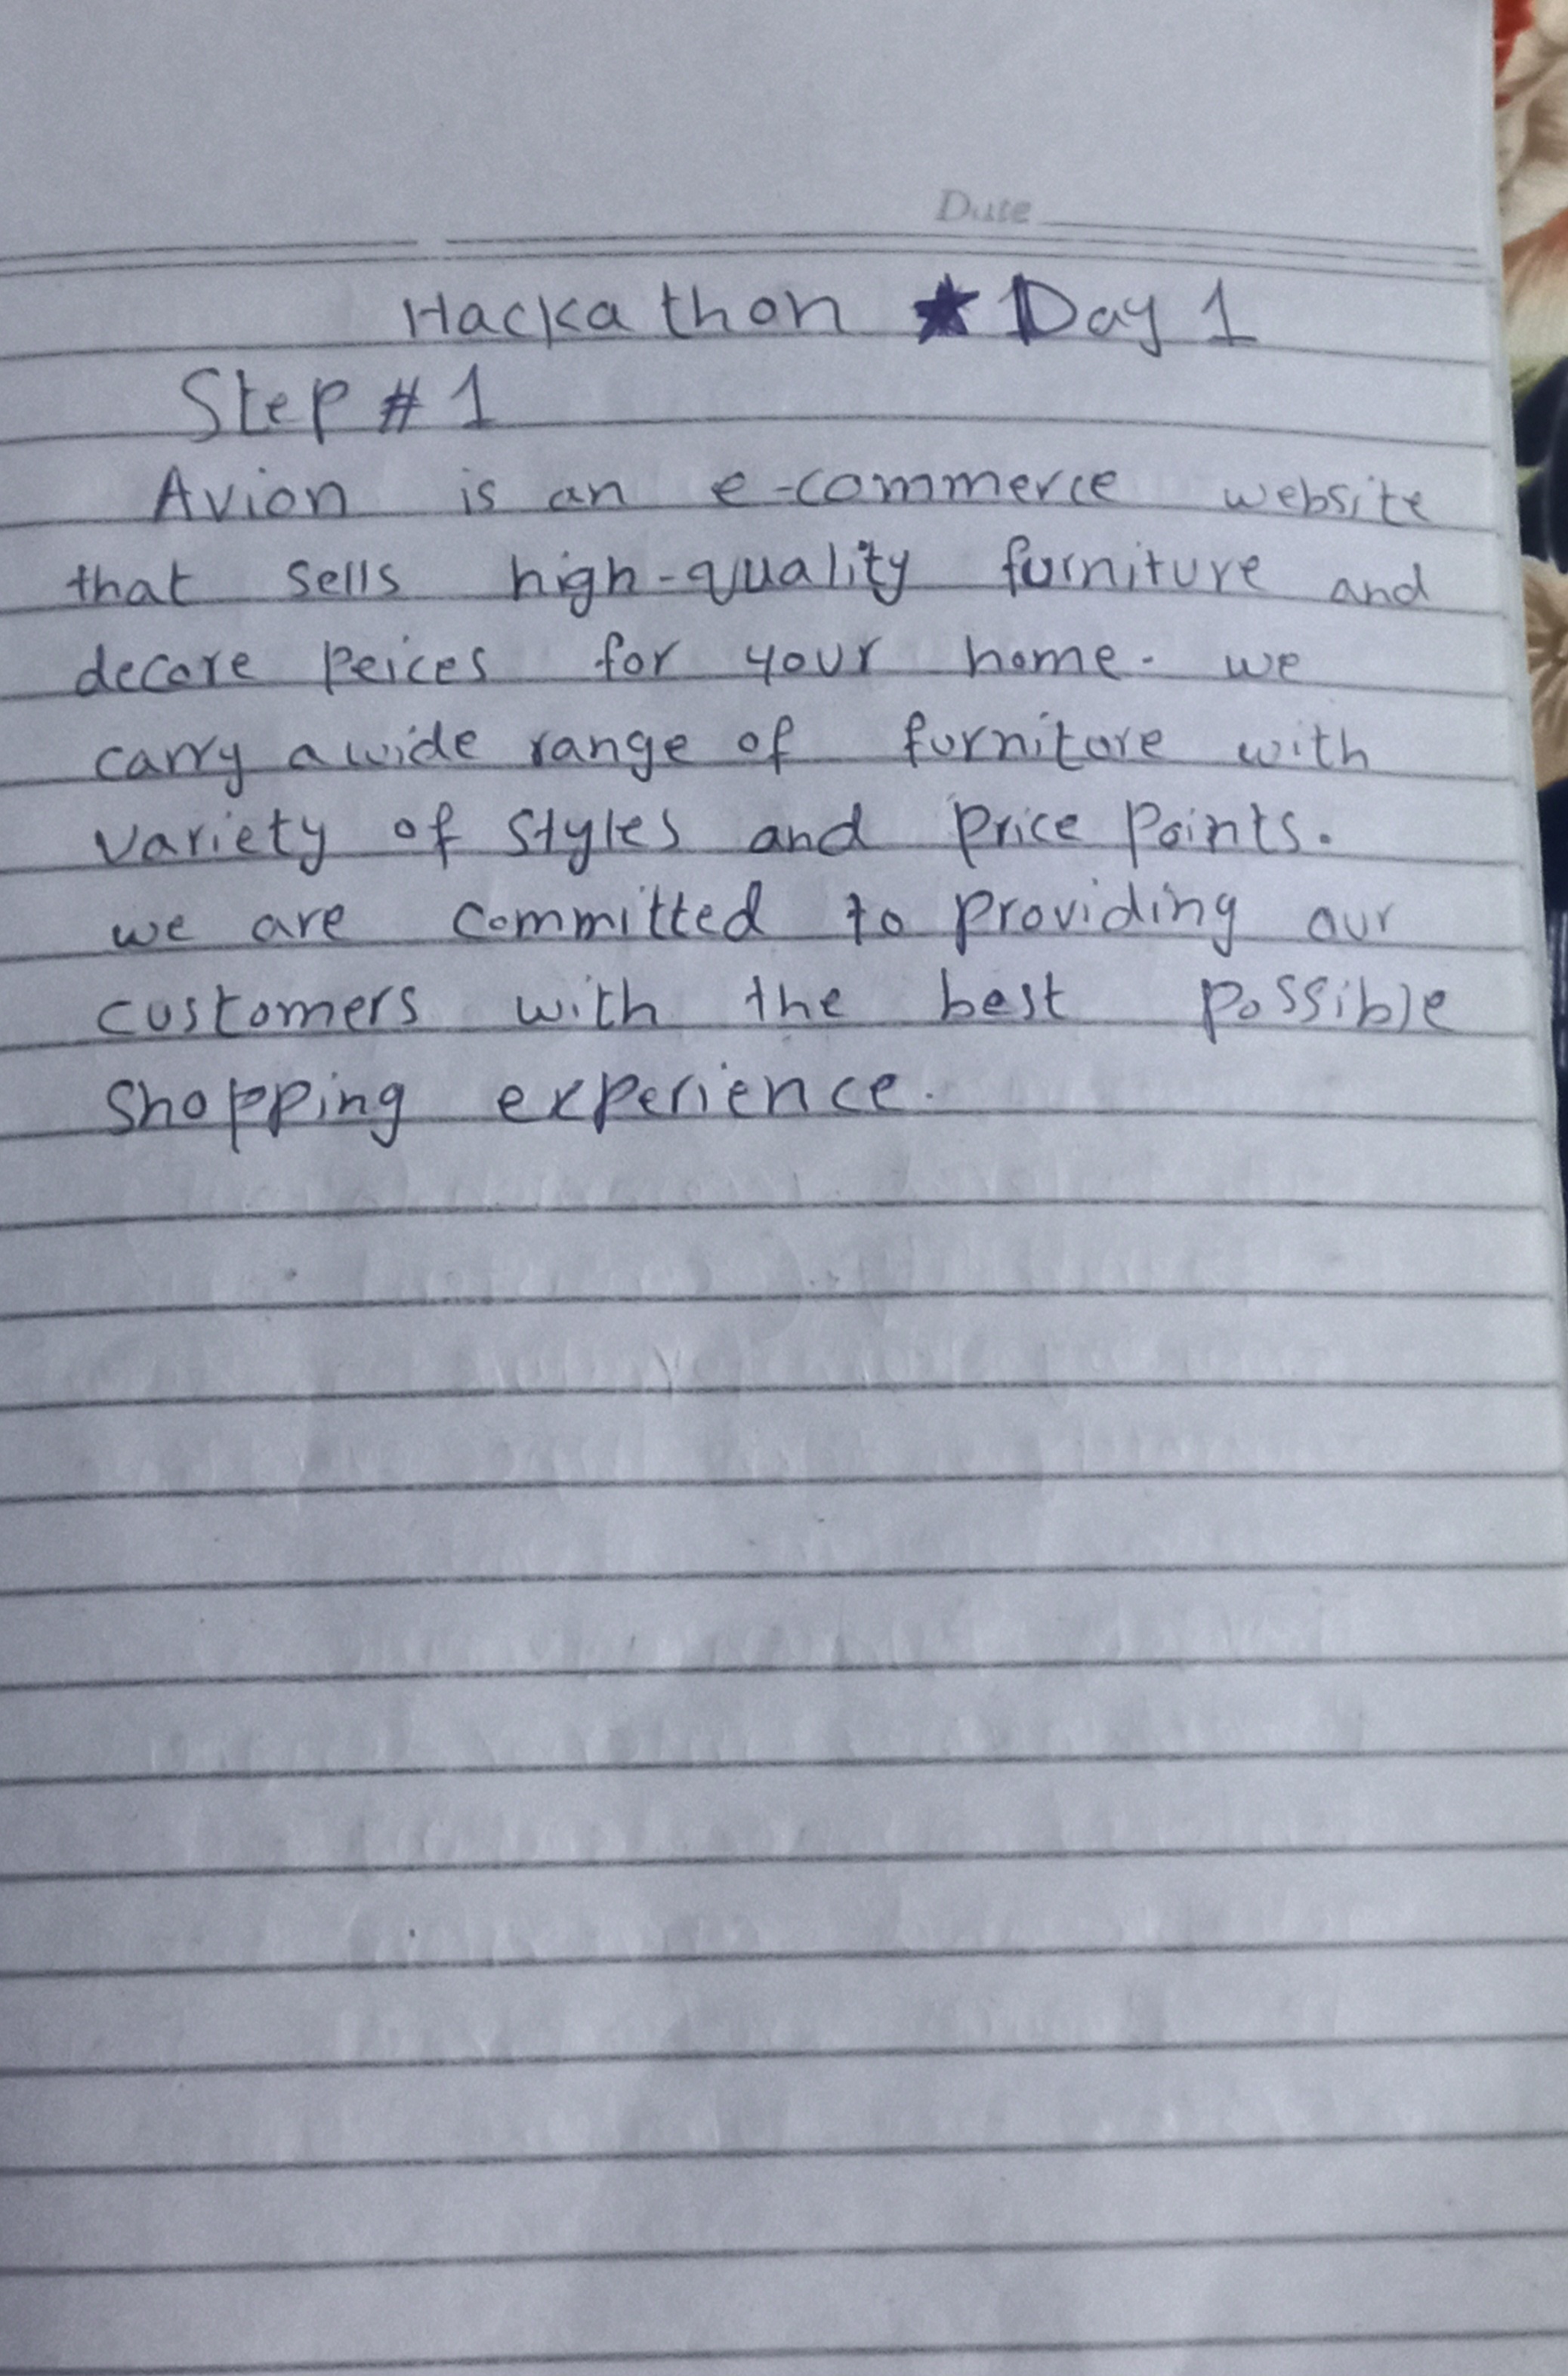 Date
Hackathon ★ Day 1
Step # 1
Avion is an e-commerce website
that sells high-quality furniture and
decore peices for your home. we
carry a wide range of furniture with
variety of styles and price points.
we are committed to providing our
customers with the best possible
Shopping experience.